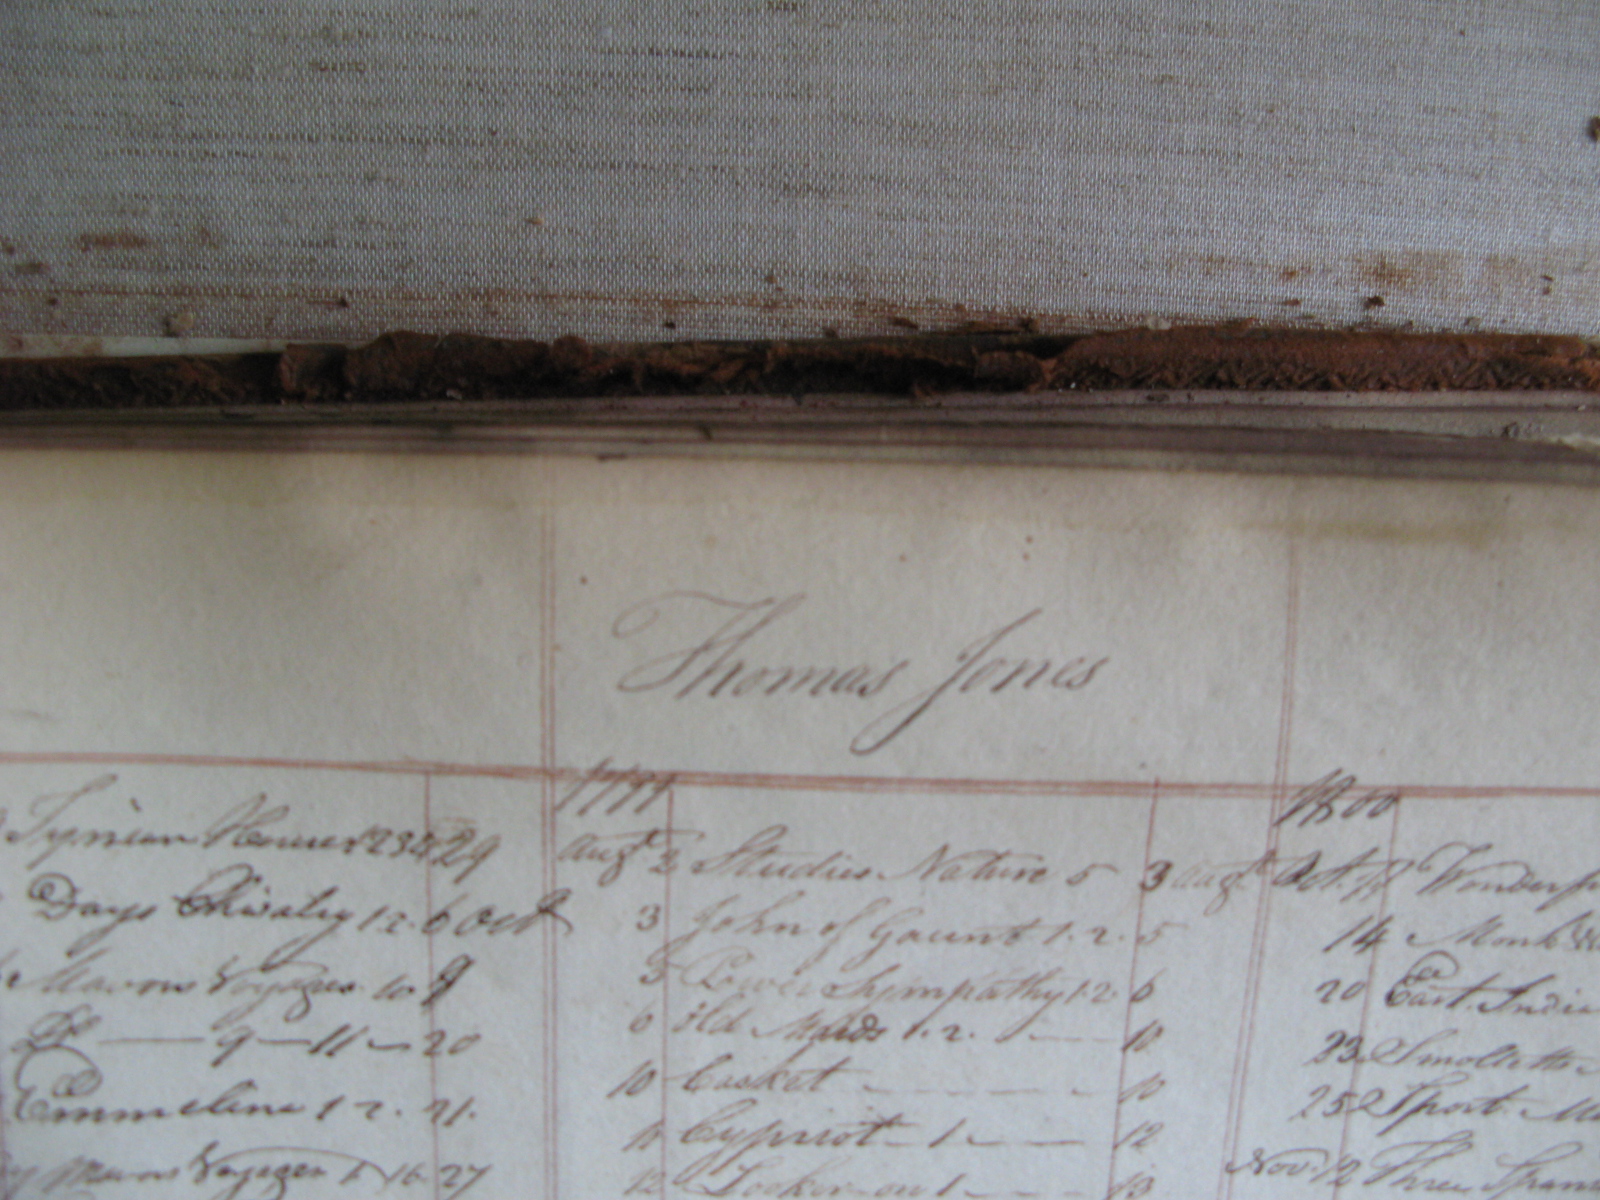 Thomas Jones
Tynian Homer 234 29
Days Chivalry 1 2. 6 Oct
Mavors Voyages 10 9
Do — 9 — 11 — 20
Emmeline 1 2. 21.
Mavors Voyages 16. 27
1799
Augt 2 Studies Nature 5 3 Augt
3 John of Gaunt 1. 2. 5
5 Power Sympathy 1. 2. 6
6 Old Maids 1. 2. — 10
10 Casket - - - - 10
11 Cypriot - 1 — — 12
12 1 - - - 13
1800
Oct.
14 Monk
20 East India
23 Smolletts
25 Sport. Ma
Nov. 12 Three Spani